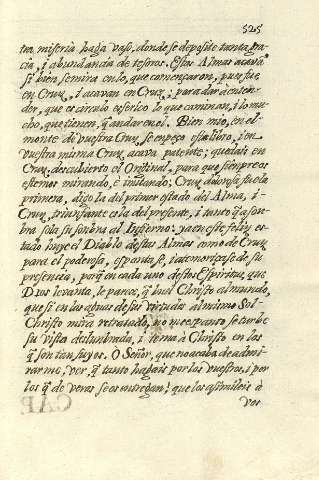 525
tra miseria haga vaso, donde se deposite tanta gra
cia, i abundancia de tesoros. Estas Almas acavã
si bien se mira en lo, que començaron, pues fue,
en Cruz, i acavan en Cruz; para dar à enten-
der, que es circulo esferico lo que caminan, i lo mu
cho, que tienen, q̃ andar en el. Bien mio, en el
monte de vuestra Cruz se enpeço este libro, i en
vuestra misma Cruz acava patente; quedais en
Cruz, descubierto el Original, para que sienpre os
estemos mirando, è imitando; Cruz dolorosa fue la
primera, digo la del primer estado del Alma, i
Cruz triunfante es la del presente, i tanto q̃ asom-
bra sola su sonbra al Infierno: ya en este feliz es
tado huye el Diablo destas Almas como de Cruz
para el poderosa, espantase, i atemorizase de su
presencia, porq̃ en cada uno destos Espiritus, que
Dios levanta, le parece, q̃ buel Christo al mundo,
que si en las aguas de sus virtudes al mismo Sol
Christo mira retratado, no me espanto se turbe
su vista deslunbrada, i tema à Christo en los
q̃ son tan suyos. O Señor, que no acaba de admi-
rarme, ver, q̃ tanto hagais por los vuestros, i por
los q̃ de veras se os entregan; que los asimileis à
vos
CAP.